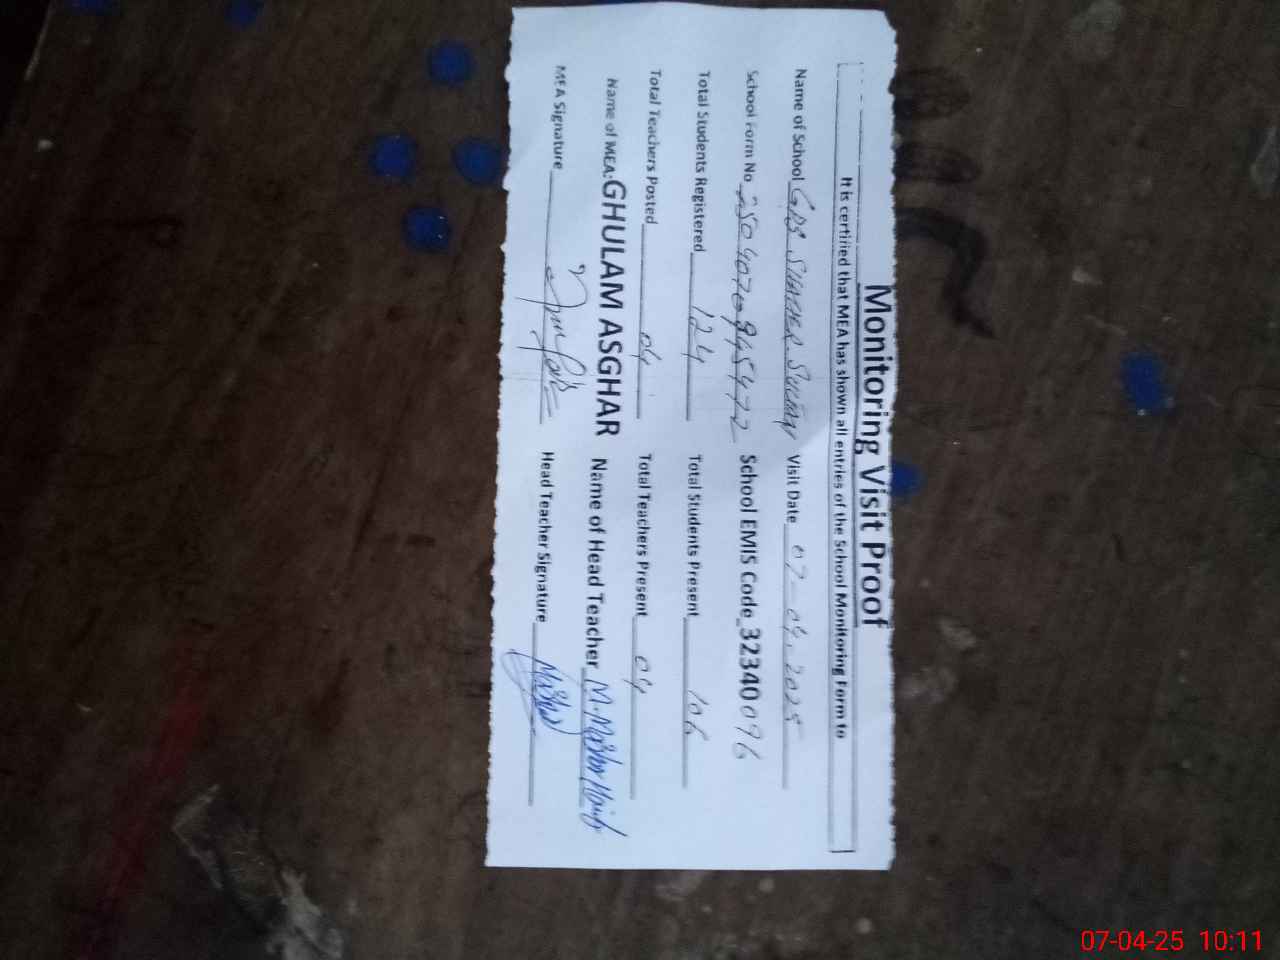 Monitoring Visit Proof
It is certified that MEA has shown all entries of the School Monitoring Form to
Name of School GPS Visit Date 07-04-2025
School Form No School EMIS Code 32340096
Total Students Registered 124 Total Students Present 106
Total Teachers Posted 04 Total Teachers Present 04
Name of MEA: GHULAM ASGHAR Name of Head Teacher M.
MEA Signature Head Teacher Signature
07-04-25 10:11